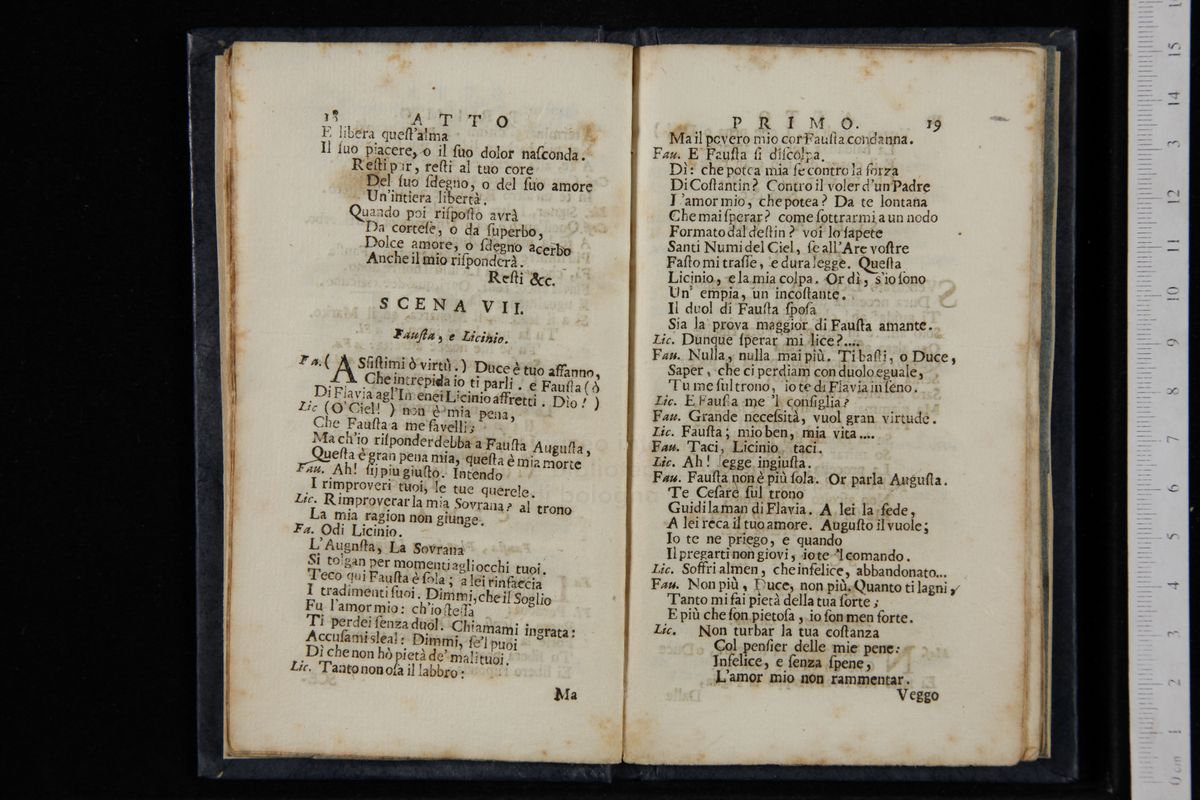 18 ATTO
E libera quest'alma
Il suo piacere, o il suo dolor nasconda.
Resti pur, resti al tuo core
Del suo sdegno, o del suo amore
Un'intiera libertà.
Quando poi risposto avrà
Da cortese, o da superbo,
Dolce amore, o sdegno acerbo
Anche il mio risponderà.
Resti &c.
SCENA VII.
Fausta, e Licinio.
Fa. ( ASsistimi ò virtù. ) Duce è tuo affanno,
Che intrepida io ti parli . e Fausta ( ò
Di Flavia agl'Imenei Licinio affretti . Dio ! )
Lic (O' Ciel! ) non è mia pena,
Che Fausta a me favelli;
Ma ch'io risponder debba a Fausta Augusta,
Questa è gran pena mia, questa è mia morte
Fau. Ah! sij piu giusto. Intendo
I rimproveri tuoi, le tue querele.
Lic. Rimproverar la mia Sovrana? al trono
La mia ragion non giunge.
Fa. Odi Licinio.
L'Augnsta, La Sovrana
Si tolgan per momenti agli occhi tuoi.
Teco qui Fausta è sola; a lei rinfaccia
I tradimenti suoi. Dimmi, che il Soglio
Fu l'amor mio: ch'io stessa
Ti perdei senza duol. Chiamami ingrata:
Accusami sleal: Dimmi, se'l puoi
Dì che non hò pietà de' mali tuoi.
Lic. Tanto non osa il labbro:
Ma
PRIMO. 19
Ma il povero mio cor Fausta condanna.
Fau. E Fausta si discolpa.
Dì: che potea mia fe contro la forza
Di Costantin? Contro il voler d'un Padre
L'amor mio, che potea? Da te lontana
Che mai sperar? come sottrarmi a un nodo
Formato dal destin? voi lo sapete
Santi Numi del Ciel, se all'Are vostre
Fasto mi trasse, e dura legge. Questa
Licinio, e la mia colpa. Or dì, s'io sono
Un' empia, un incostante.
Il duol di Fausta sposa
Sia la prova maggior di Fausta amante.
Lic. Dunque sperar mi lice?....
Fau. Nulla, nulla mai più. Ti basti, o Duce,
Saper, che ci perdiam con duolo eguale,
Tu me sul trono, io te di Flavia in seno.
Lic. E Fausta me 'l consiglia?
Fau. Grande necessità, vuol gran virtude.
Lic. Fausta; mio ben, mia vita....
Fau. Taci, Licinio taci.
Lic. Ah! legge ingiusta.
Fau. Fausta non è più sola. Or parla Augusta.
Te Cesare sul trono
Guidi la man di Flavia. A lei la fede,
A lei reca il tuo amore. Augusto il vuole;
Io te ne priego, e quando
Il pregarti non giovi, io te 'l comando.
Lic. Soffri almen, che infelice, abbandonato...
Fau. Non più, Duce, non più. Quanto ti lagni,
Tanto mi fai pietà della tua sorte;
E più che son pietosa, io son men forte.
Lic. Non turbar la tua costanza
Col pensier delle mie pene:
Infelice, e senza spene,
L'amor mio non rammentar.
Veggo